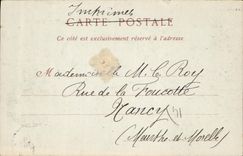 Imprimés
CARTE POSTALE
Ce côté est exclusivement réservé à l'adresse
Mademoiselle M. Le Roy
Rue de la Foucotte
Nancy
(Meurthe et Moselle)